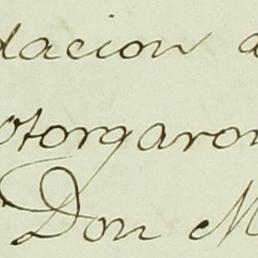 dacion d
otorgaron
Don M